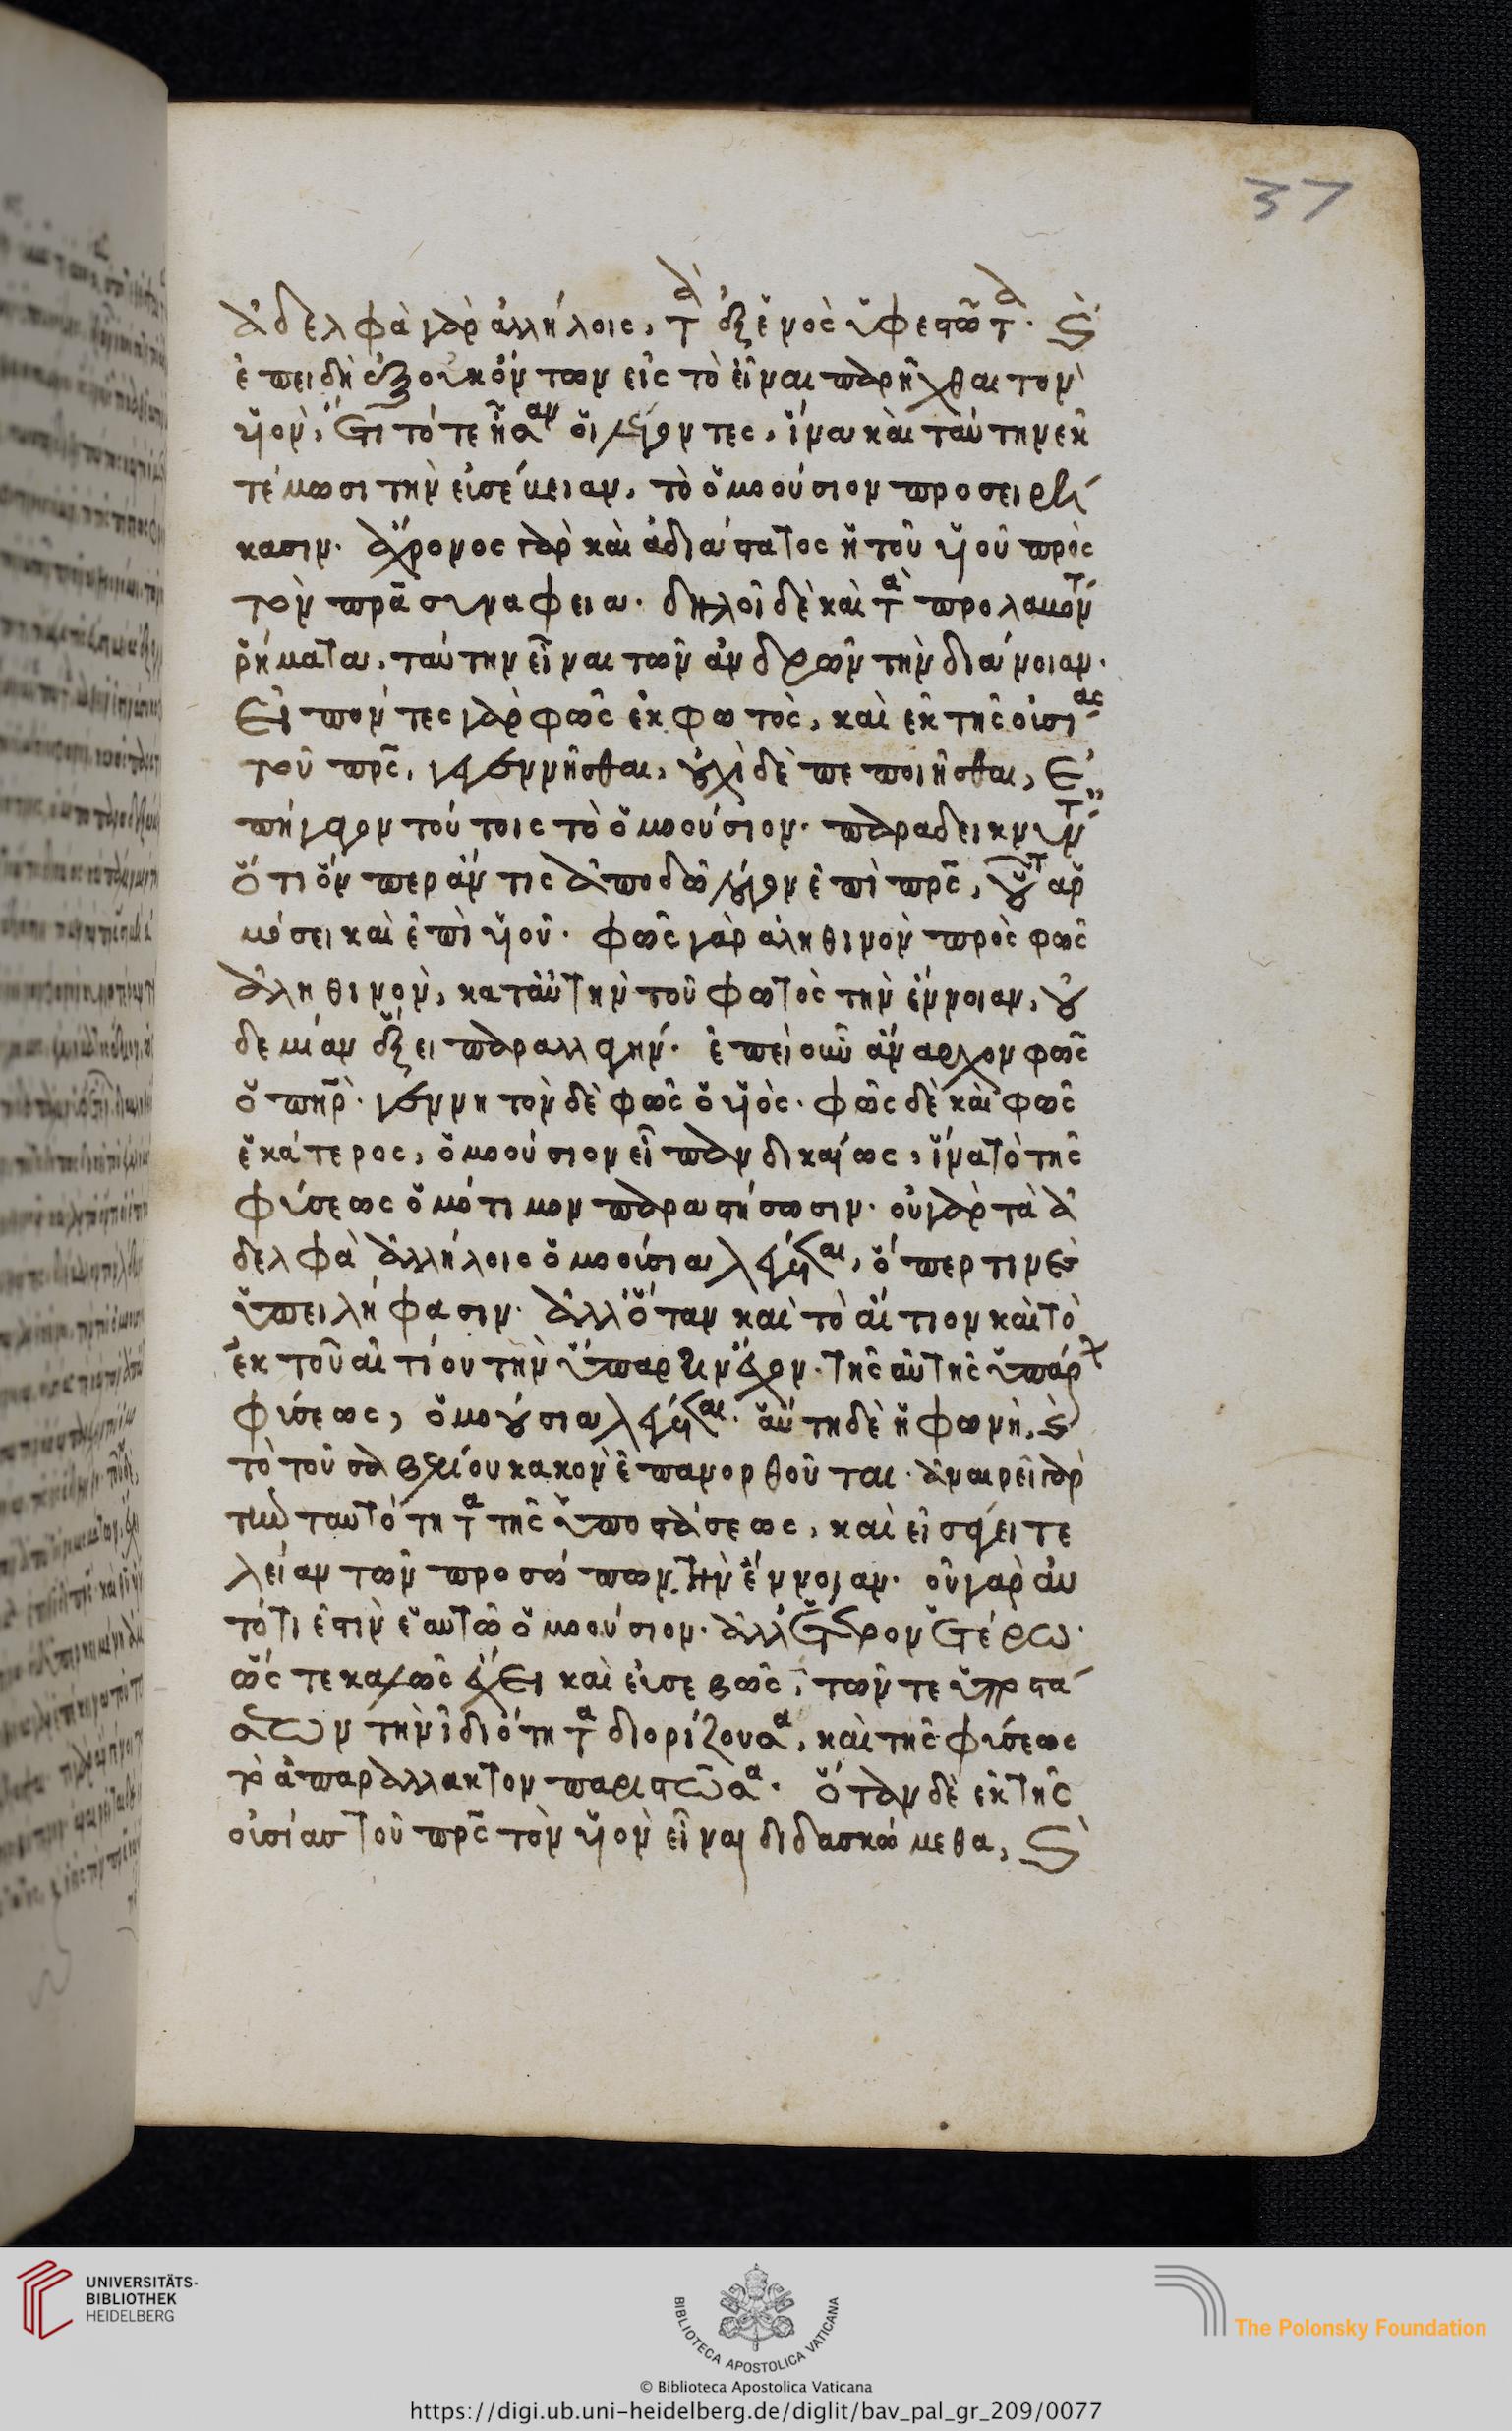 ἀδελφὰ γὰρ ἀλλήλοις, τὰ ἐξ ἑνὸς ὑφεστῶτα. καὶ
ἐπειδὴ ἐξ οὐκ ὄντων εἰς τὸ εἶναι παρῆχθαι τὸν
υἱὸν, ἔτι τότε ἦσαν οἱ λέγοντες, ἵνα καὶ ταύτην ἐκ
τέμωσι τὴν ἀσέβειαν, τὸ ὁμοούσιον προσειρή
κασιν. ἄχρονος γὰρ καὶ ἀδιάστατος ἡ τοῦ υἱοῦ πρὸς
τὸν πρα συνάφεια. δηλοῖ δὲ καὶ τὰ προλαβόντ
ῥήματα, ταύτην εἶναι τῶν ἀνδρῶν τὴν διάνοιαν.
Εἰπόντες γὰρ φῶς ἐκ φωτὸς, καὶ ἐκ τῆς οὐσίας
τοῦ πρς, γεγεννῆσθαι, οὐχὶ δὲ πεποιῆσθαι, ἐ
πήγαγον τούτοις τὸ ὁμοούσιον. παραδεικνύντ
ὅτι ὅνπερ ἄν τις ἀποδῶ λόγον ἐπὶ πρς, οὗτ ἁρ
μόσει καὶ ἐπὶ υἱοῦ. φῶς γὰρ ἀληθινὸν πρὸς φῶς
ἀληθινὸν, κατ αὐτὴν τοῦ φωτὸς τὴν ἔννοιαν, οὐ
δεμίαν ἕξει παραλλαγήν. ἐπεὶ οὖν ἄναρχον φῶς
ὁ πηρ. γεννητὸν δὲ φῶς ὁ υἱὸς. φῶς δὲ καὶ φῶς
ἑκάτερος, ὁμοούσιον εἶπαν δικαίως, ἵνα τὸ τῆς
φύσεως ὁμότιμον παραστήσωσιν. οὐ γὰρ τὰ ἀ
δελφὰ ἀλλήλοις ὁμοούσια λέγεται, ὅπερ τινὲς
ὑπειλήφασιν. ἀλλ' ὅταν καὶ τὸ αἴτιον καὶ τὸ
ἐκ τοῦ αἰτίου τὴν ὕπαρξιν ἔχον. τῆς αὐτῆς ὑπάρχ
φύσεως, ὁμοούσια λέγεται. αὕτη δὲ ἡ φωνὴ, καὶ
τὸ τοῦ σαβελλίου κακὸν ἐπανορθοῦται. ἀναιρεῖ γὰρ
τὴν ταυτότητα τῆς ὑποστάσεως, καὶ εἰσάγει τε
λείαν τῶν προσώπων τὴν ἔννοιαν. οὐ γὰρ αὐ
τό τι ἐστὶν ἑαυτῶ ὁμοούσιον. ἀλλ' ἕτερον ἑτέρω.
ὥστε καλῶς ἔχει καὶ εὐσεβῶς, τῶν τε ὑποστά
σεων τὴν ἰδιότητα διορίζουσα, καὶ τῆς φύσεως
τὸ ἀπαράλλακτον παριστῶσα. ὅταν δὲ ἐκ τῆς
οὐσίας τοῦ πρς τὸν υἱὸν εἶναι διδασκώμεθα, καὶ
37
UNIVERSITÄTS-
BIBLIOTHEK
HEIDELBERG
BIBLIOTECA APOSTOLICA VATICANA
The Polonsky Foundation
© Biblioteca Apostolica Vaticana
https://digi.ub.uni-heidelberg.de/diglit/bav_pal_gr_209/0077